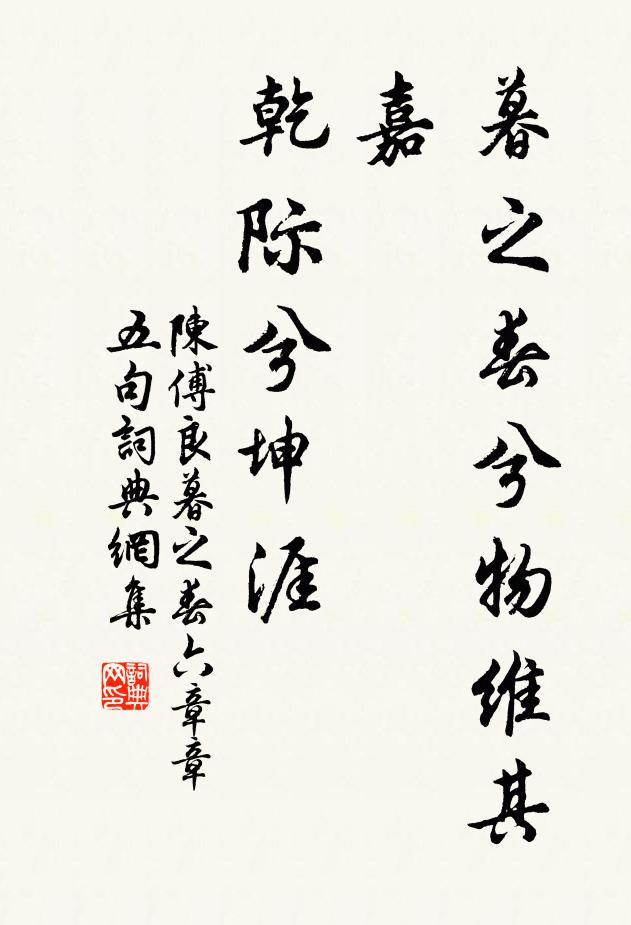 暮之春兮物维其
嘉
乾际兮坤涯
陳傅良暮之春六章章
五句詞典網集
詞典網印